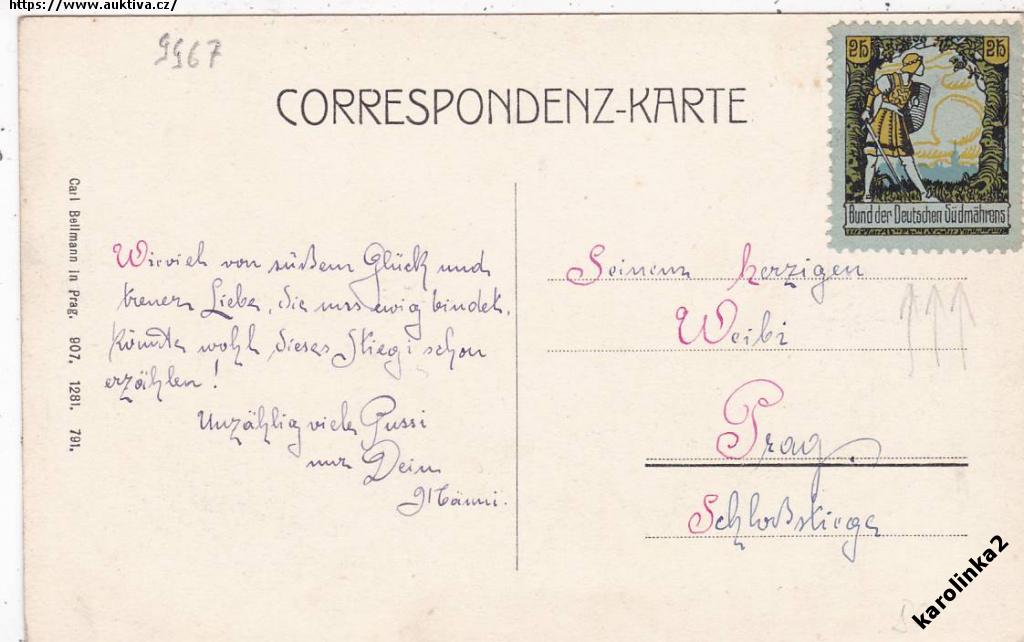 https://www.auktiva.cz/
9967
CORRESPONDENZ-KARTE
2h 2h
Bund der Deutschen Südmährens
Carl Bellmann in Prag. 907, 1281, 791.
Wieviel von süßem Glück und
treuer Liebe, die uns ewig bindet,
könnte wohl dieses Stiegi schon
erzählen!
Unzählig viele Pussi
nur Dein
Männi.
Seinem herzigen
Weibi
Prag.
Schloßstiege
karolinka2